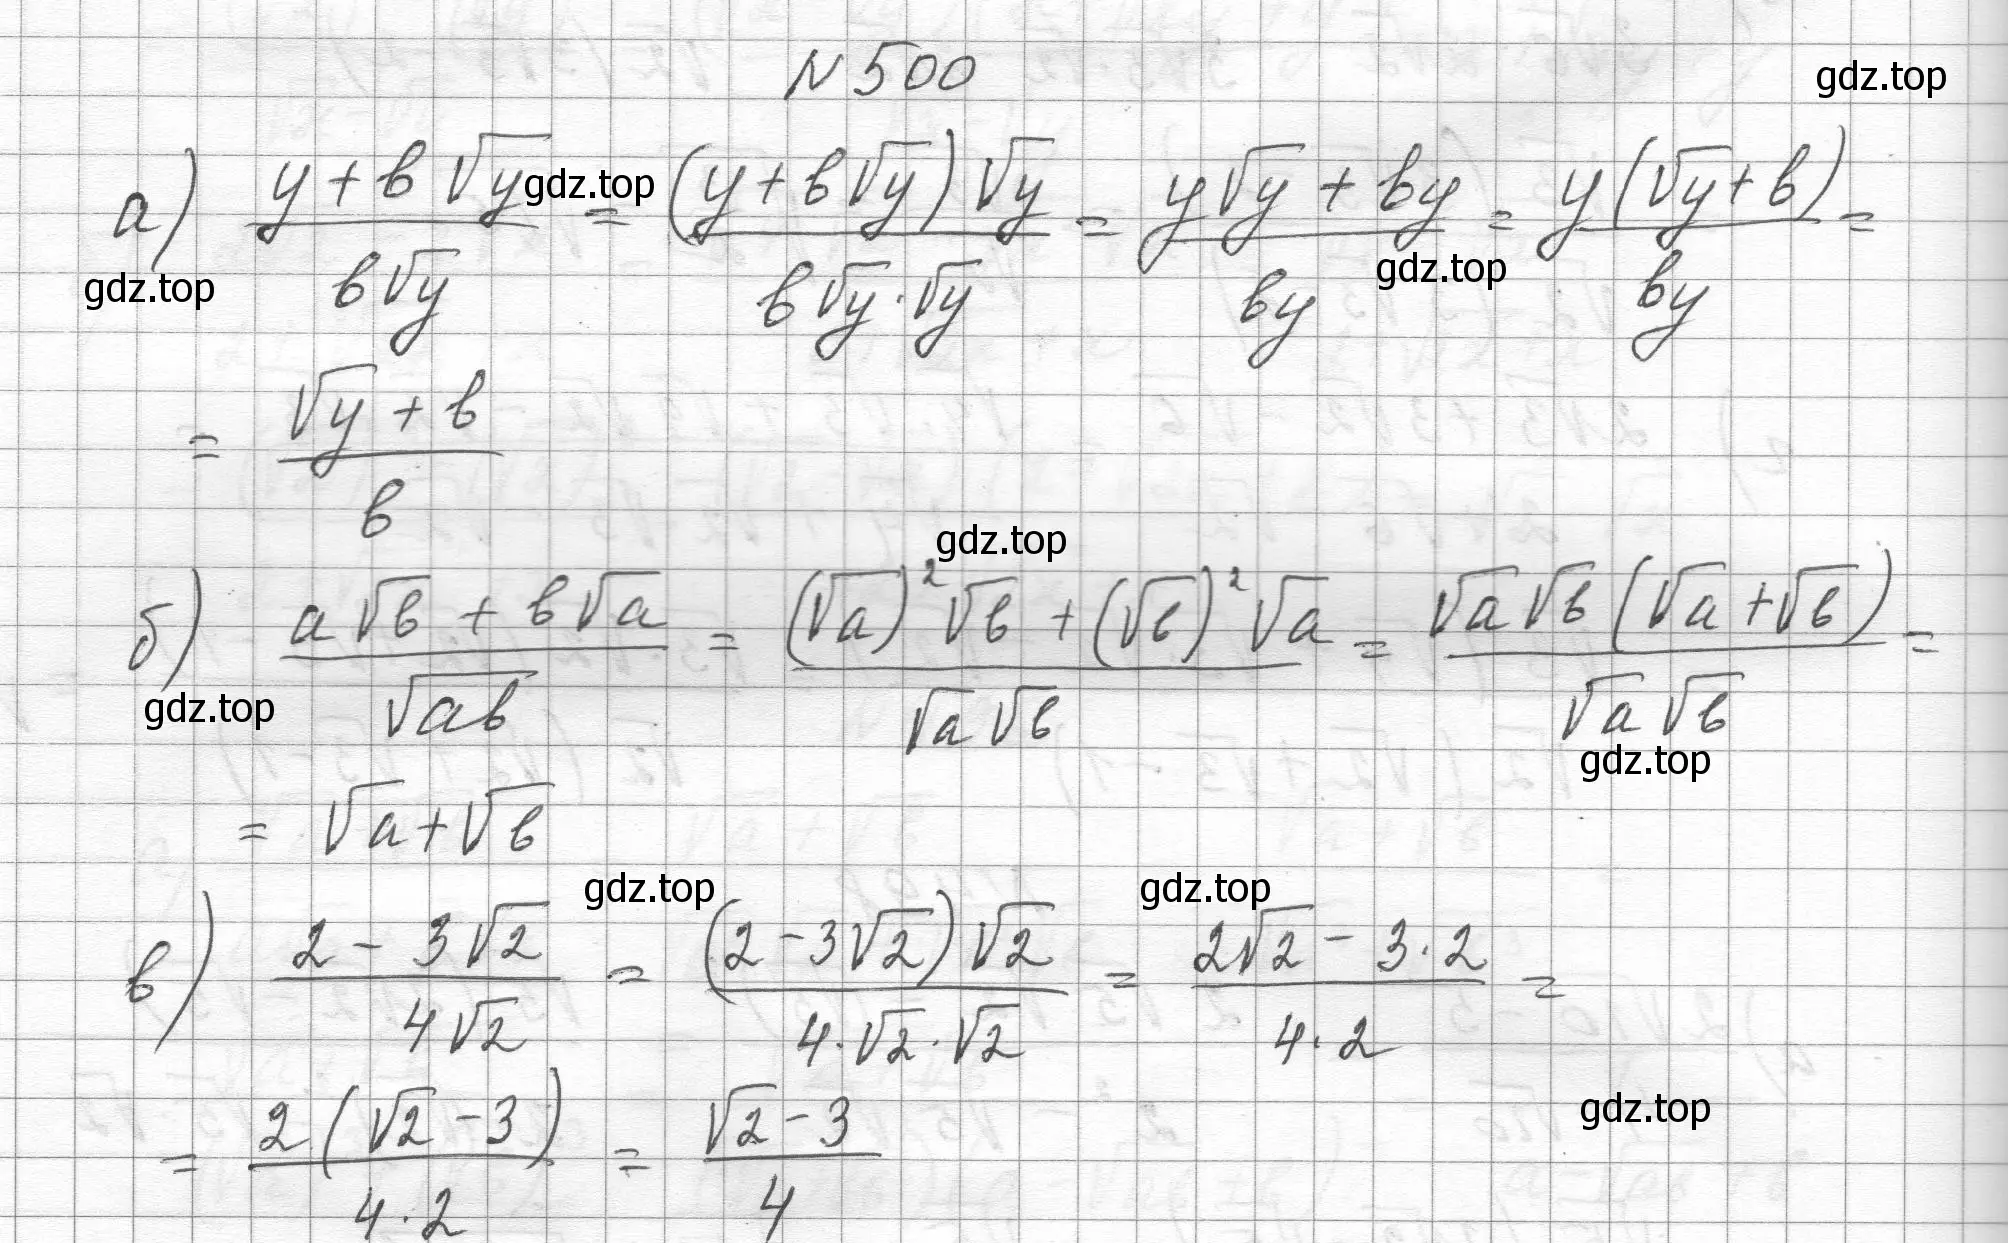 N 500
gdz.top
а) (y + b√y)/(b√y) = ((y + b√y)√y)/(b√y·√y) = (y√y + by)/(by) = (y(√y + b))/(by) =
gdz.top
gdz.top
gdz.top
= (√y + b)/b
gdz.top
б) (a√b + b√a)/√ab = ((√a)²√b + (√b)²√a)/(√a√b) = (√a√b(√a + √b))/(√a√b) =
gdz.top
gdz.top
= √a + √b
gdz.top
gdz.top
в) (2 - 3√2)/(4√2) = ((2 - 3√2)√2)/(4·√2·√2) = (2√2 - 3·2)/(4·2) =
gdz.top
= (2(√2 - 3))/(4·2) = (√2 - 3)/4